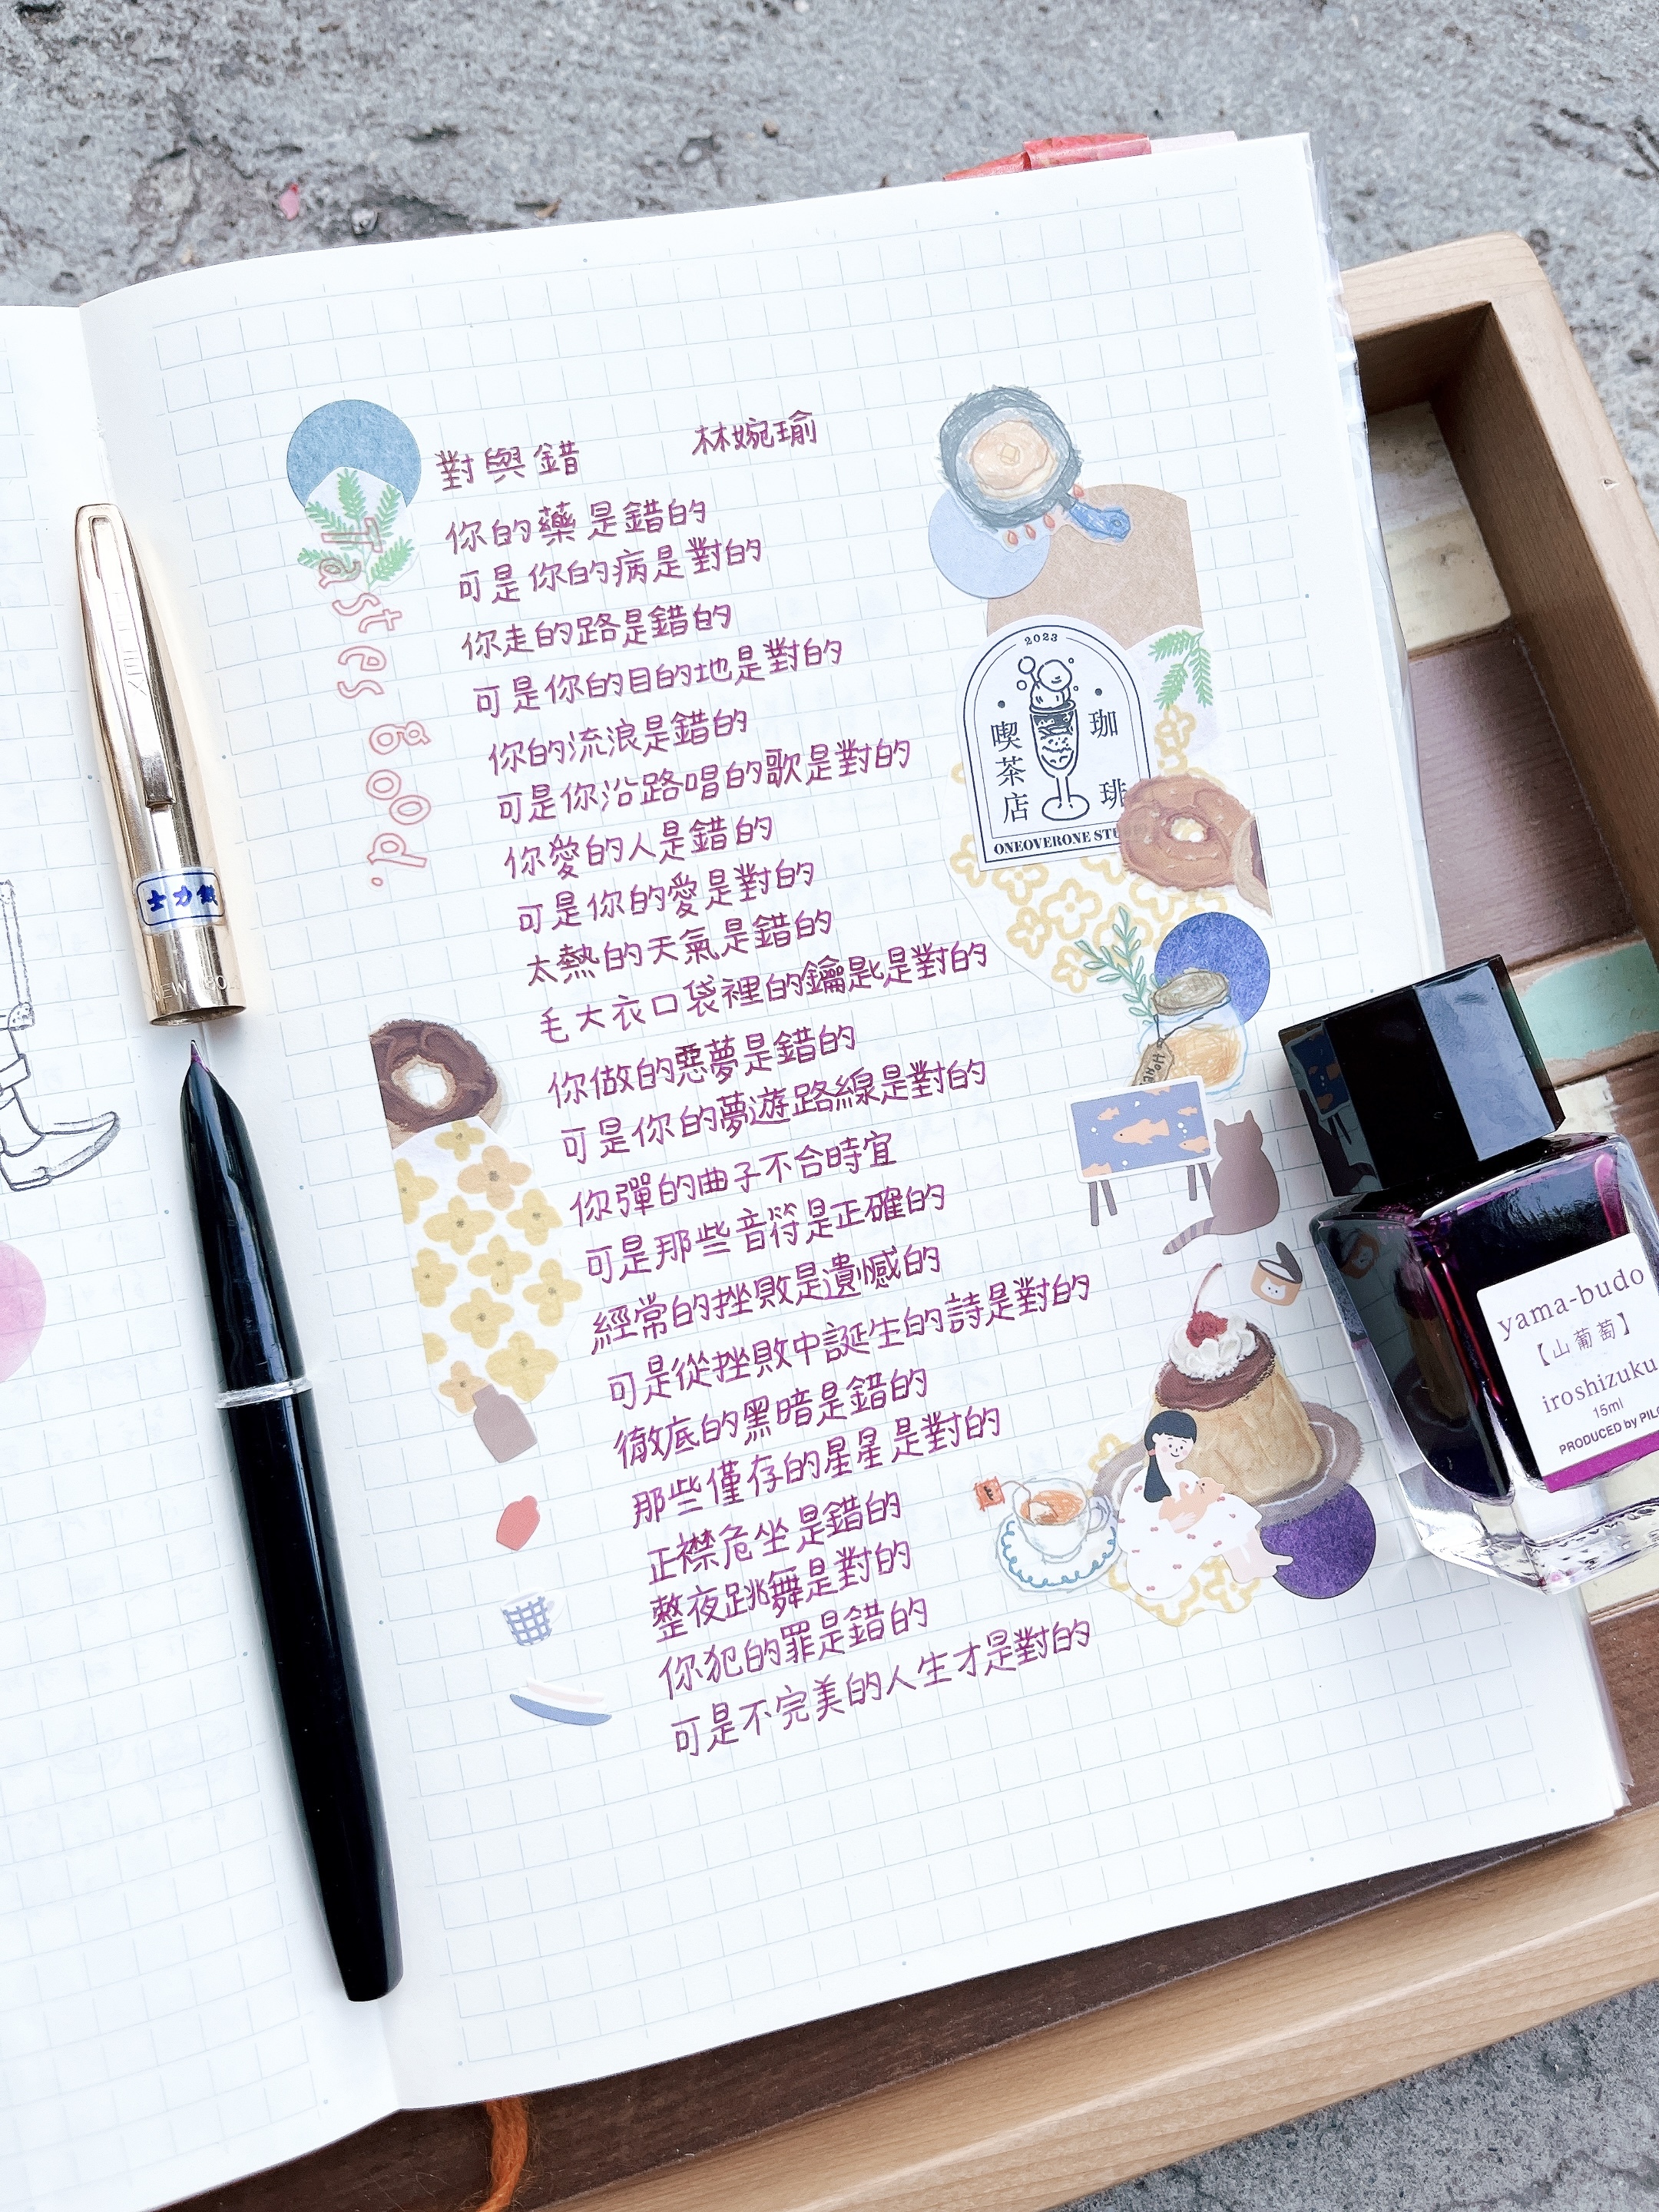 對與錯 林婉瑜
你的藥是錯的
可是你的病是對的
你走的路是錯的
可是你的目的地是對的
你的流浪是錯的
可是你沿路唱的歌是對的
你愛的人是錯的
可是你的愛是對的
太熱的天氣是錯的
毛大衣口袋裡的鑰匙是對的
你做的惡夢是錯的
可是你的夢遊路線是對的
你彈的曲子不合時宜
可是那些音符是正確的
經常的挫敗是遺憾的
可是從挫敗中誕生的詩是對的
徹底的黑暗是錯的
那些僅存的星星是對的
正襟危坐是錯的
整夜跳舞是對的
你犯的罪是錯的
可是不完美的人生才是對的
Tastes good.
2023
珈琲
喫茶店
ONEOVERONE
yama-budo
【山葡萄】
iroshizuku
15ml
PRODUCED by